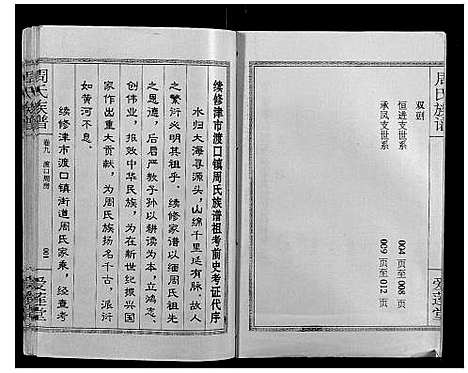 周氏族谱
双剅
恒进支世系 004页至008页
承凤支世系 009页至012页
爱莲堂
续修津市渡口镇周氏族谱祖考前史考证代序
水归大海寻源头，山绵千里延有脉。故人
之繁衍必明其祖乎。续修家谱以缅周氏祖先
之恩德，后启严教子孙以耕读为本，立鸿志、
创伟业，报效中华民族，为在新世纪振兴国
家作出重大贡献，为周氏族扬名千古，派衍
如黄河不息。
续修津市渡口镇街道周氏家乘，经查考
周氏族谱
卷九 渡口周湾
001
爱莲堂